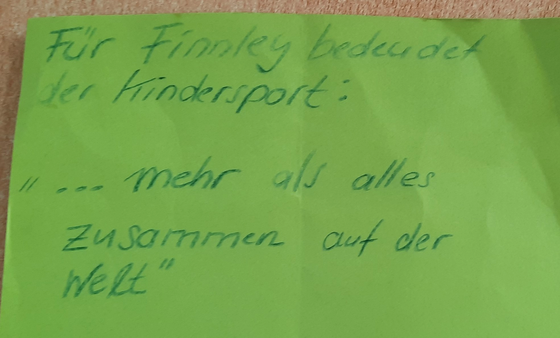 Für Finnley bedeudet
der Kindersport:
"... mehr als alles
zusammen auf der
Welt"